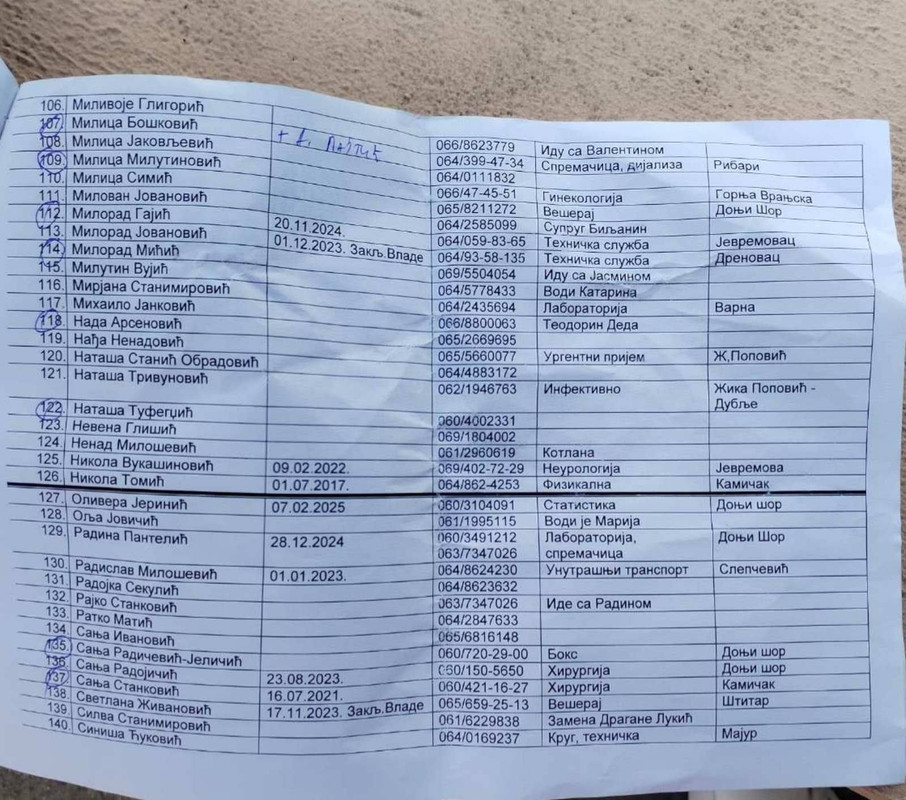 106. Миливоје Глигорић 066/8623779 Иду са Валентином
107. Милица Бошковић 064/399-47-34 Спремачица, дијализа Рибари
108. Милица Јаковљевић 064/0111832
109. Милица Милутиновић 066/47-45-51 Гинекологија Горња Врањска
110. Милица Симић 065/8211272 Вешерај Доњи Шор
111. Милован Јовановић 064/2585099 Супруг Биљанин
112. Милорад Гајић 20.11.2024. 064/059-83-65 Техничка служба Јевремовац
113. Милорад Јовановић 01.12.2023. Закљ.Владе 064/93-58-135 Техничка служба Дреновац
114. Милорад Мићић 069/5504054 Иду са Јасмином
115. Милутин Вујић 064/5778433 Води Катарина
116. Мирјана Станимировић 064/2435694 Лабораторија Варна
117. Михаило Јанковић 066/8800063 Теодорин Деда
118. Нада Арсеновић 065/2669695
119. Нађа Ненадовић 065/5660077 Ургентни пријем Ж,Поповић
120. Наташа Станић Обрадовић 064/4883172
121. Наташа Тривуновић 062/1946763 Инфективно Жика Поповић -
Дубље
122. Наташа Туфегџић 060/4002331
123. Невена Глишић 069/1804002
124. Ненад Милошевић 061/2960619 Котлана
125. Никола Вукашиновић 09.02.2022. 069/402-72-29 Неурологија Јевремова
126. Никола Томић 01.07.2017. 064/862-4253 Физикална Камичак
127. Оливера Јеринић 07.02.2025 060/3104091 Статистика Доњи шор
128. Оља Јовичић 061/1995115 Води је Марија
129. Радина Пантелић 28.12.2024 060/3491212 Лабораторија, Доњи Шор
063/7347026 спремачица
130. Радислав Милошевић 01.01.2023. 064/8624230 Унутрашњи транспорт Слепчевић
131. Радојка Секулић 064/8623632
132. Рајко Станковић 063/7347026 Иде са Радином
133. Ратко Матић 064/2847633
134. Сања Ивановић 065/6816148
135. Сања Радичевић-Јеличић 060/720-29-00 Бокс Доњи шор
136. Сања Радојичић 23.08.2023. 060/150-5650 Хирургија Доњи шор
137. Сања Станковић 16.07.2021. 060/421-16-27 Хирургија Камичак
138. Светлана Живановић 17.11.2023. Закљ.Владе 065/659-25-13 Вешерај Штитар
139. Силва Станимировић 061/6229838 Замена Драгане Лукић
140. Синиша Ћуковић 064/0169237 Круг, техничка Мајур